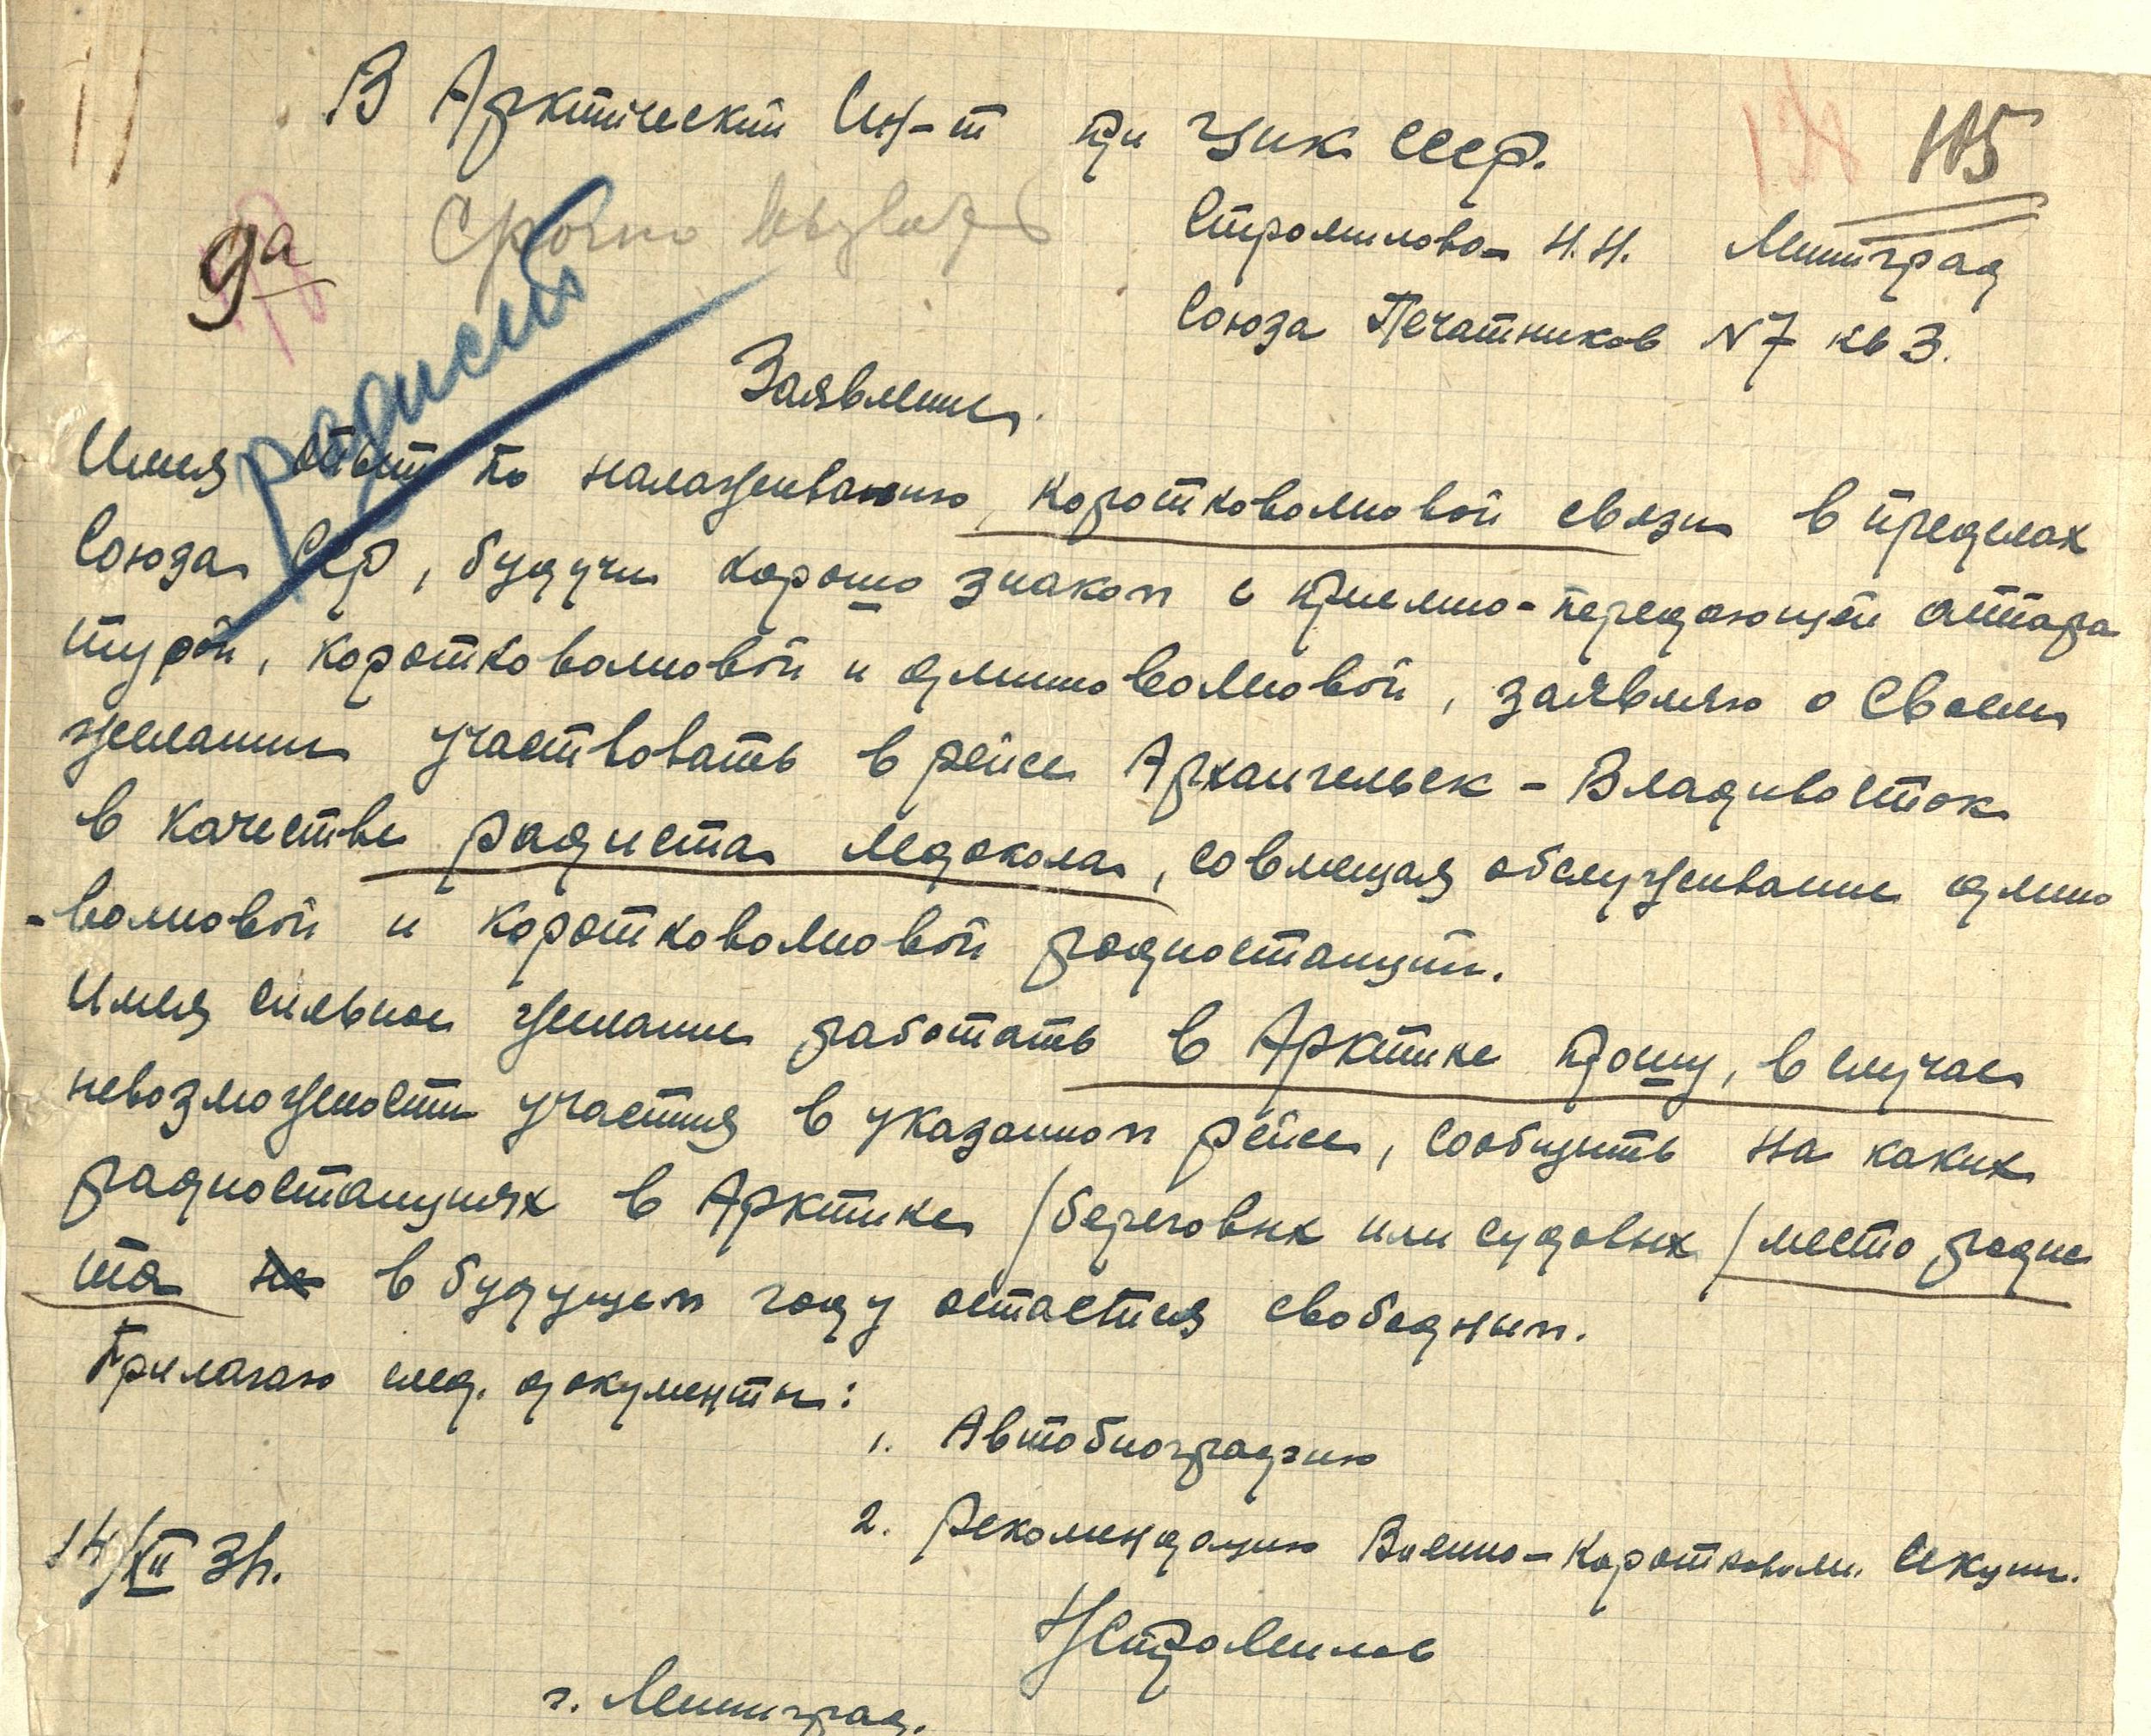 В Арктический Ин-т при ЦИК СССР.
115
Срочно вызвать
9а
Стромилова Н.Н. Ленинград
Союза Печатников N7 кв 3.
радисты
Заявление.
Имея опыт по налаживанию, коротковолновой связи в пределах
Союза ССР, будучи хорошо знаком с приемно-передающей аппара
турой, коротковолновой и длинноволновой, заявляю о своем
желании участвовать в рейсе Архангельск - Владивосток
в качестве радиста ледокола, совмещая обслуживание длинно
-волновой и коротковолновой радиостанций.
Имея сильное желание работать в Арктике прошу, в случае
невозможности участия в указанном рейсе, сообщить на каких
радиостанциях в Арктике /береговых или судовых/ место радис
та на в будущем году остается свободным.
Прилагаю след. документы:
1. Автобиографию
2. Рекомендацию Военно-Коротковолн. Секции.
14/XII 31г.
НСтромилов
г. Ленинград.